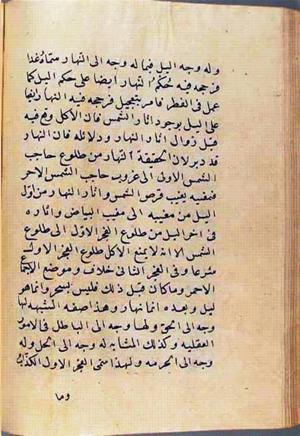 وله وجه الى الليل فيما له وجه الى النهار
فرجحه فيه حكم النهار ايضا على حكم الليل كما
عمل فى الفطر فامر بتعجيل فرجحه فيه النهار ايضا
على الليل بوجود اثار النهار فان الاكل وقع فيه
قبل زوال اثار النهار ودلائله فان النهار
قد دبر لان الحقيقة النهار من طلوع حاجب
الشمس الاولى الى غروب حاجب الشمس الاخر
فبمغيبه يغيب قرص الشمس واثار النهار من اول
الليل من مغيبه الى مغيب البياض واثاره
فى اخر الليل من طلوع الفجر الاول الى طلوع
الشمس الا انه لا يمنع الاكل طلوع الفجر الاول
شرعا وفى الفجر الثانى خلاف وموضع الاجماع
الاحمر وما كان قبل ذلك فليس بسحر وانما هو
ليل وبعده انما نهار وهذا صفة الشبهة لها
وجه الى الحق ولها وجه الى الباطل فى الامور
العقلية وكذلك المتشابه له وجه الى الحل وله
وجه الى الحرمة ولهذا سمى الفجر الاول الكذاب
وما